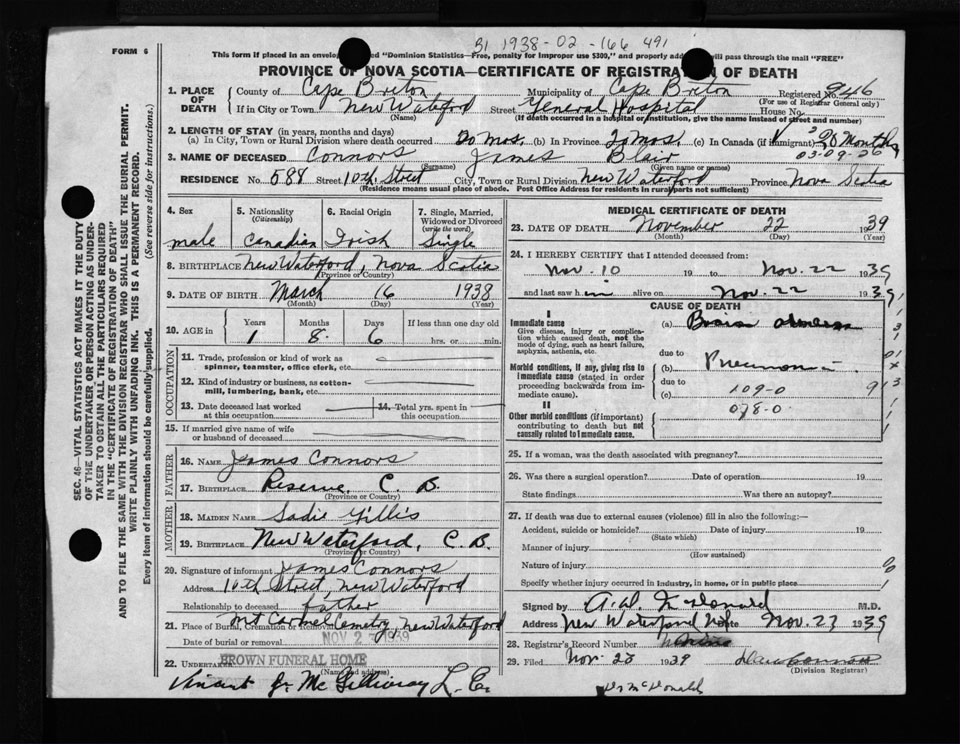 B1 1938-02-166 491
FORM 6
This form if placed in an envelope marked "Dominion Statistics—Free, penalty for improper use $300," and properly addressed will pass through the mail "FREE"
PROVINCE OF NOVA SCOTIA—CERTIFICATE OF REGISTRATION OF DEATH
1. PLACE OF DEATH County of Cape Breton Municipality of Cape Breton Registered No. 946
(For use of Registrar General only)
If in City or Town New Waterford Street General Hospital House No.
(Name) (If death occurred in a hospital or institution, give the name instead of street and number)
2. LENGTH OF STAY (in years, months and days)
(a) In City, Town or Rural Division where death occurred 20 mos. (b) In Province 20 mos. (c) In Canada (if immigrant) 20 Months
03-09-26
3. NAME OF DECEASED Connors James Blair
(Surname) (Given name or names)
RESIDENCE No. 588 Street 10th Street City, Town or Rural Division New Waterford Province Nova Scotia
(Residence means usual place of abode. Post Office Address for residents in rural parts not sufficient)
SEC. 46—VITAL STATISTICS ACT MAKES IT THE DUTY
OF THE UNDERTAKER OR PERSON ACTING AS UNDER-
TAKER TO OBTAIN ALL THE PARTICULARS REQUIRED
IN THE "CERTIFICATE OF REGISTRATION OF DEATH"
AND TO FILE THE SAME WITH THE DIVISION REGISTRAR WHO SHALL ISSUE THE BURIAL PERMIT.
WRITE PLAINLY WITH UNFADING INK. THIS IS A PERMANENT RECORD.
Every item of information should be carefully supplied. (See reverse side for instructions.)
4. Sex 5. Nationality (Citizenship) 6. Racial Origin 7. Single, Married, Widowed or Divorced (write the word)
male Canadian Irish Single
8. BIRTHPLACE New Waterford, Nova Scotia
(Province or Country)
9. DATE OF BIRTH March 16 1938
(Month) (Day) (Year)
10. AGE in Years Months Days If less than one day old
1 8 6 hrs. or min.
OCCUPATION
11. Trade, profession or kind of work as spinner, teamster, office clerk, etc.
12. Kind of industry or business, as cotton-mill, lumbering, bank, etc.
13. Date deceased last worked at this occupation 14. Total yrs. spent in this occupation
15. If married give name of wife or husband of deceased
FATHER
16. NAME James Connors
17. BIRTHPLACE Reserve, C. B.
(Province or Country)
MOTHER
18. MAIDEN NAME Sadie Gillis
19. BIRTHPLACE New Waterford, C. B.
(Province or Country)
20. Signature of informant James Connors
Address 10th Street, New Waterford
Relationship to deceased Father
21. Place of Burial, Cremation or Removal Mt Carmel Cemetry, New Waterford
Date of burial or removal NOV 23 1939
22. UNDERTAKER BROWN FUNERAL HOME
(Name and address)
Vincent J. McGillivray L. E.
MEDICAL CERTIFICATE OF DEATH
23. DATE OF DEATH November 22 1939
(Month) (Day) (Year)
24. I HEREBY CERTIFY that I attended deceased from:
Nov. 10 19 to Nov. 22 1939
and last saw him alive on Nov. 22 1939
CAUSE OF DEATH
I
Immediate cause (a) Brain
Give disease, injury or complication which caused death, not the mode of dying, such as heart failure, asphyxia, asthenia, etc.
due to
(b) Pneumonia
Morbid conditions, if any, giving rise to immediate cause (stated in order proceeding backwards from immediate cause)
due to
(c) 109-0
II
078-0
Other morbid conditions (if important) contributing to death but not causally related to immediate cause.
25. If a woman, was the death associated with pregnancy?
26. Was there a surgical operation? Date of operation 19
State findings Was there an autopsy?
27. If death was due to external causes (violence) fill in also the following:—
Accident, suicide or homicide? Date of injury 19
(State which)
Manner of injury
(How sustained)
Nature of injury
Specify whether injury occurred in industry, in home, or in public place
Signed by A. D. McDonald M.D.
Address New Waterford Date Nov. 23 1939
28. Registrar's Record Number
29. Filed Nov. 23 1939
(Division Registrar)
Dr McDonald